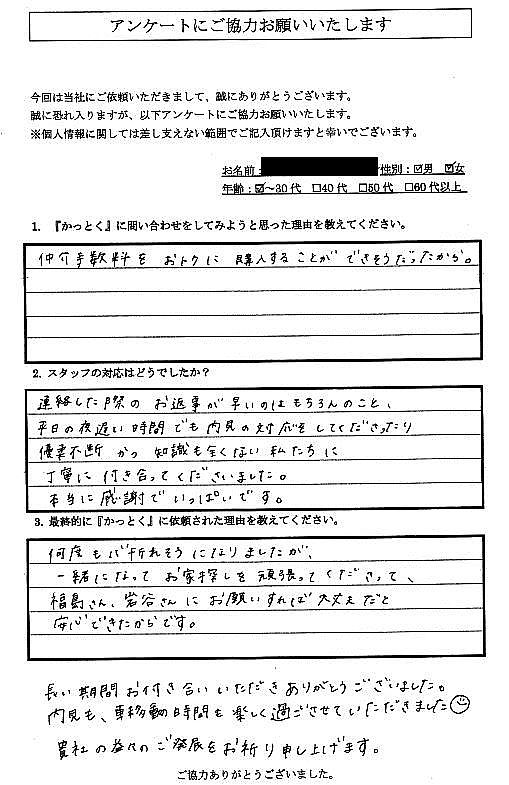 アンケートにご協力お願いいたします
今回は当社にご依頼いただきまして、誠にありがとうございます。
誠に恐れ入りますが、以下アンケートにご協力お願いいたします。
※個人情報に関しては差し支えない範囲でご記入頂けますと幸いでございます。
お名前: 性別:☑男 ☑女
年齢:☑~30代 □40代 □50代 □60代以上
1. 『かっとく』に問い合わせをしてみようと思った理由を教えてください。
仲介手数料をおトクに購入することができそうだったから。
2. スタッフの対応はどうでしたか?
連絡した際のお返事が早いのはもちろんのこと、
平日の夜遅い時間でも内見の対応をしてくださったり
優柔不断かつ知識も全くない私たちに
丁寧に付き合ってくださいました。
本当に感謝でいっぱいです。
3. 最終的に『かっとく』に依頼された理由を教えてください。
何度も心が折れそうになりましたが、
一緒になってお家探しを頑張ってくださって、
福島さん、岩谷さんにお願いすれば大丈夫だと
安心できたからです。
長い期間お付き合いいただきありがとうございました。
内見も、車移動の時間も楽しく過ごさせていただきました☺
貴社の益々のご発展をお祈り申し上げます。
ご協力ありがとうございました。